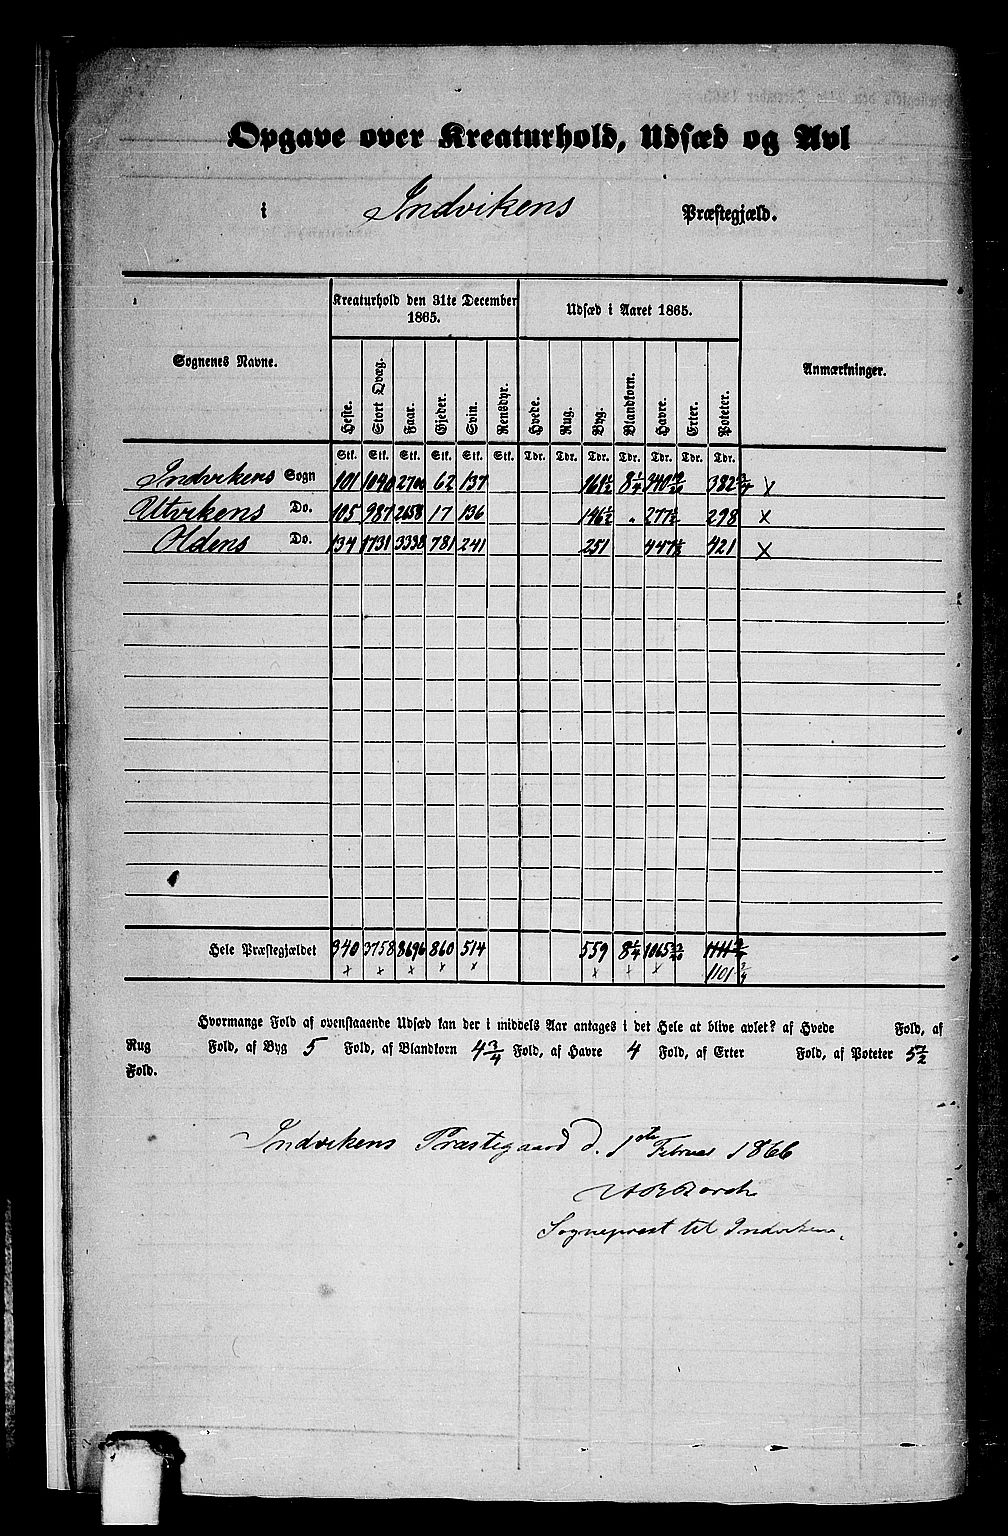 Opgave over Kreaturhold, Udsæd og Avl
i Indvikens Præstegjæld.
Sognenes Navne. Kreaturhold den 31te December 1865. Udsæd i Aaret 1865. Anmærkninger.
Heste. Stort Qvæg. Faar. Gjeder. Svin. Rensdyr. Hvede. Rug. Byg. Blandkorn. Havre. Erter. Poteter.
Stk. Stk. Stk. Stk. Stk. Stk. Tdr. Tdr. Tdr. Tdr. Tdr. Tdr. Tdr.
Indvikens Sogn 101 1040 2700 62 137 161½ 8¼ 382 x
Utvikens Do. 105 987 2658 17 136 146½ 277½ 298 x
Oldens Do. 134 1731 3338 781 241 251 447½ 421 x
Hele Præstegjældet 340 3758 8696 860 514 559 8¼ 1065
x x x x x x x x 1101¾
Hvormange Fold af ovenstaaende Udsæd kan der i middels Aar antages i det Hele at blive avlet? af Hvede Fold, af
Rug Fold, af Byg 5 Fold, af Blandkorn 4¾ Fold, af Havre 4 Fold, af Erter Fold, af Poteter 5½
Fold.
Indvikens Præstegaard d. 1ste Februar 1866
Borch
Sogneprest til Indviken.